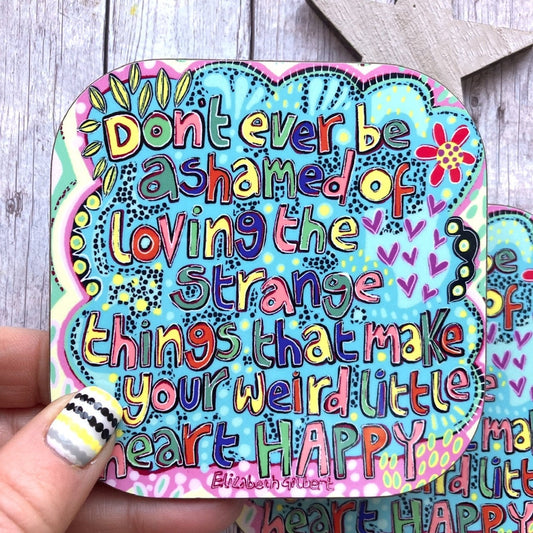 Don't ever be
ashamed of
loving the
strange
things that make
your weird little
heart HAPPY
Elizabeth Gilbert
be
of
mak
ittle
heart HAPPY